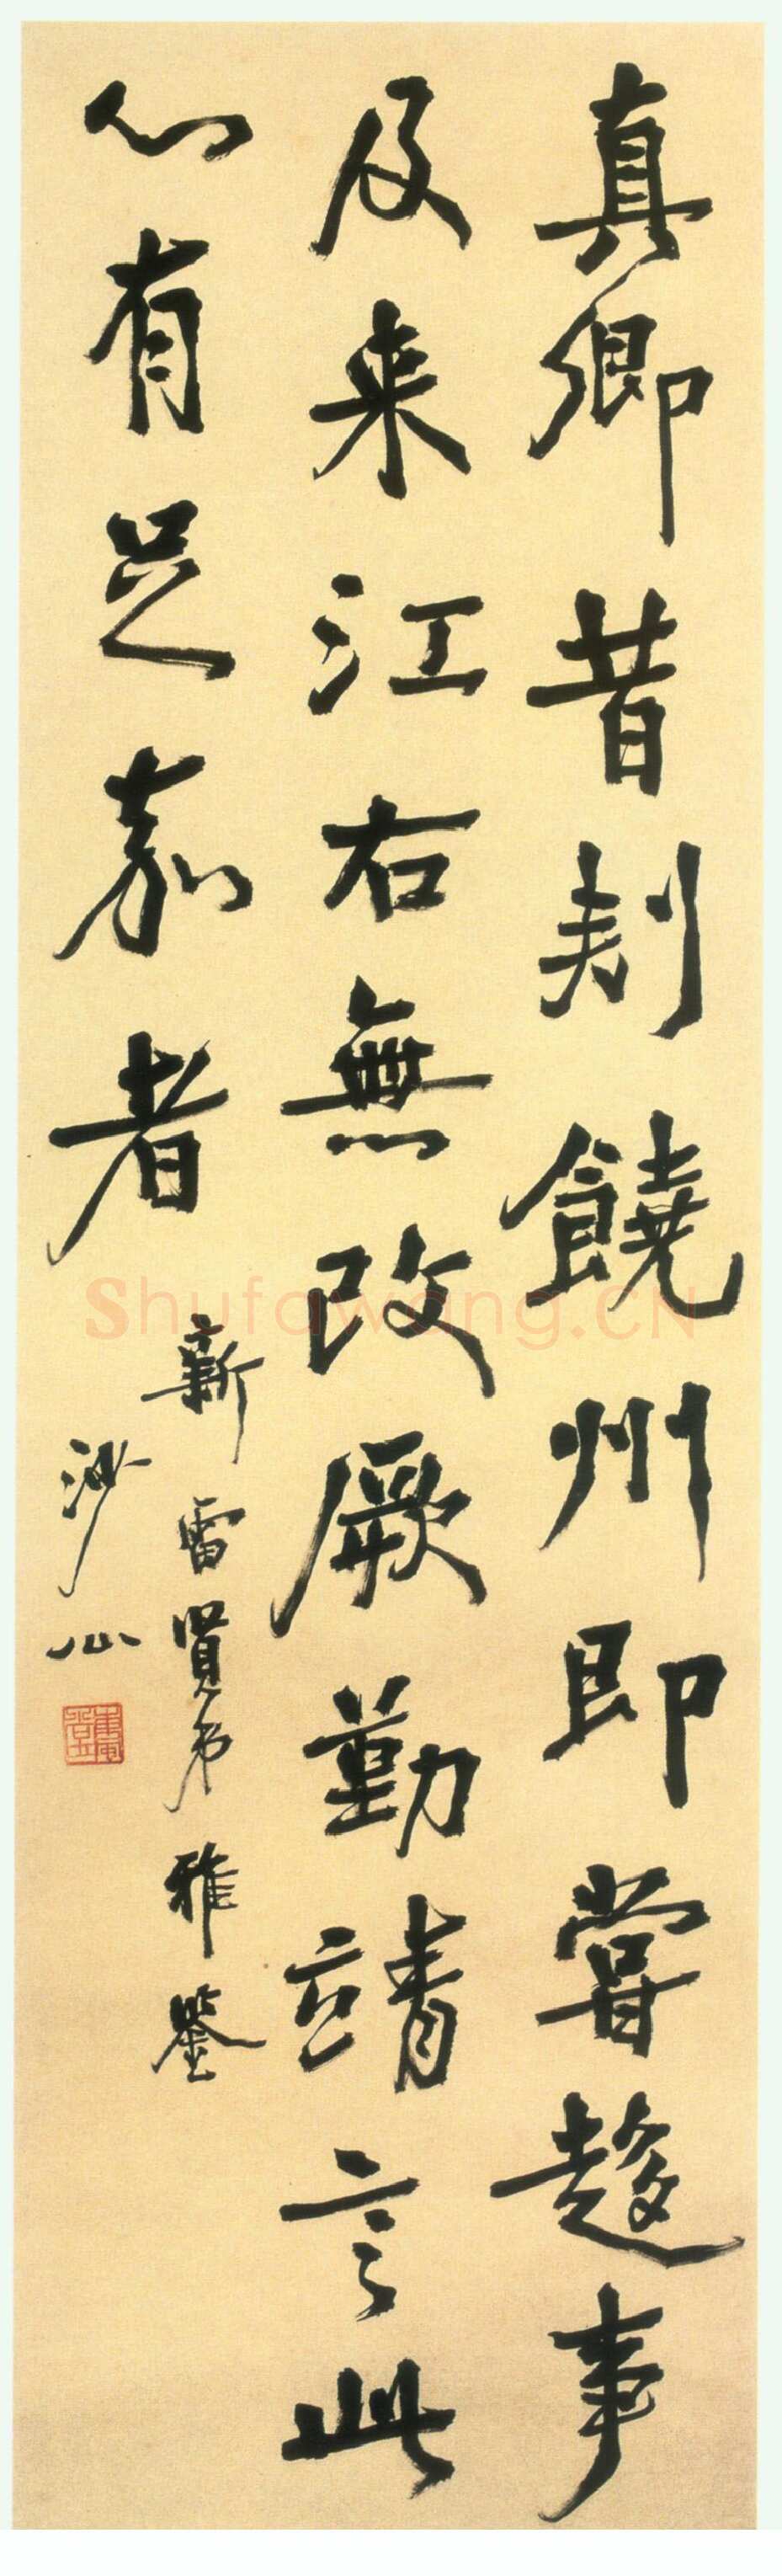 真卿昔刾饒州即嘗趍事
及来江右無改厥勤靖言此
心有足嘉者
新雷賢弟雅鉴
沙孟
Shufawang.CN